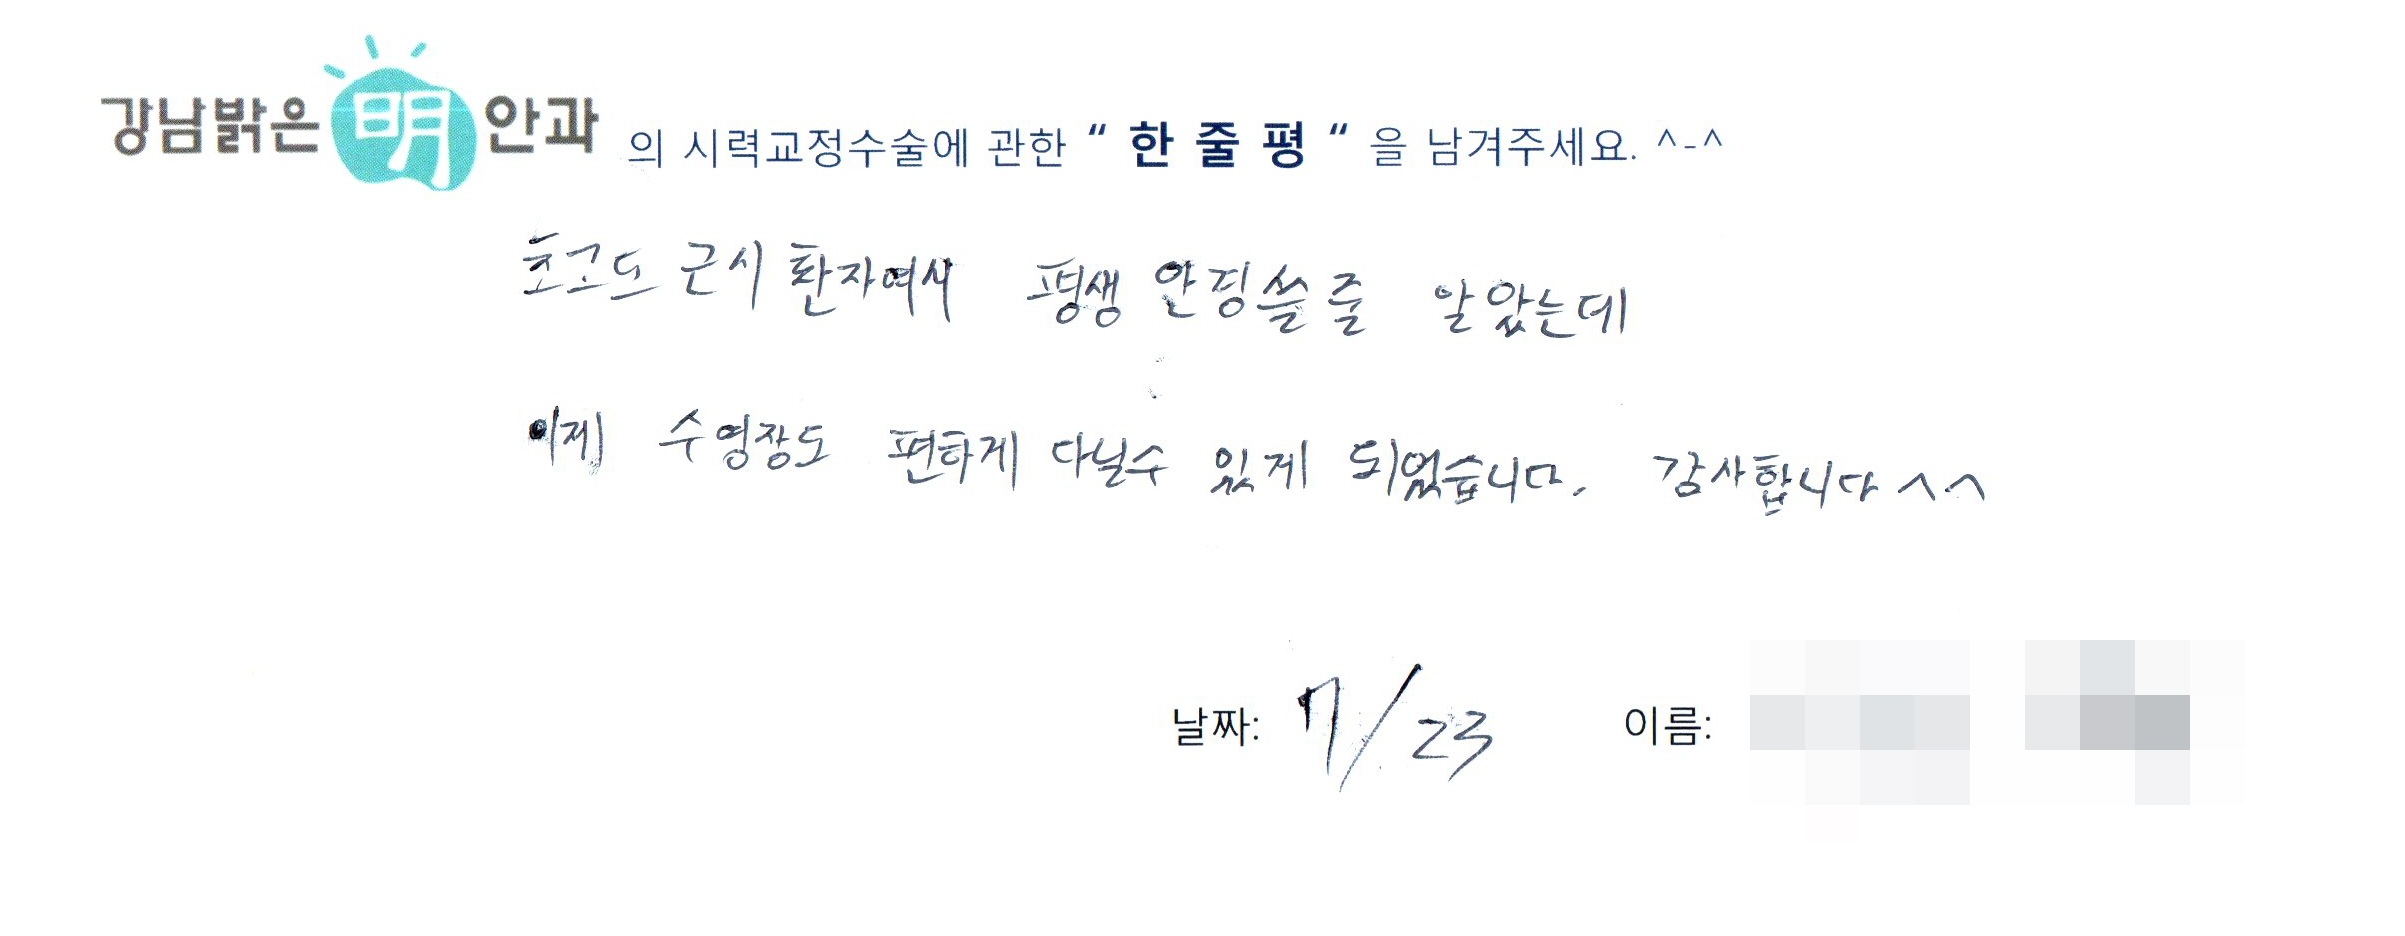 강남밝은明안과 의 시력교정수술에 관한 “ 한 줄 평 “ 을 남겨주세요. ^-^
초고도 근시 환자여서 평생 안경쓸줄 알았는데
이제 수영장도 편하게 다닐수 있게 되었습니다. 감사합니다 ^^
날짜: 7/23 이름: